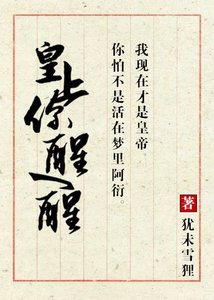 皇上你醒醒
我现在才是皇帝
你怕不是活在梦里阿衍。
著
犹未雪狸